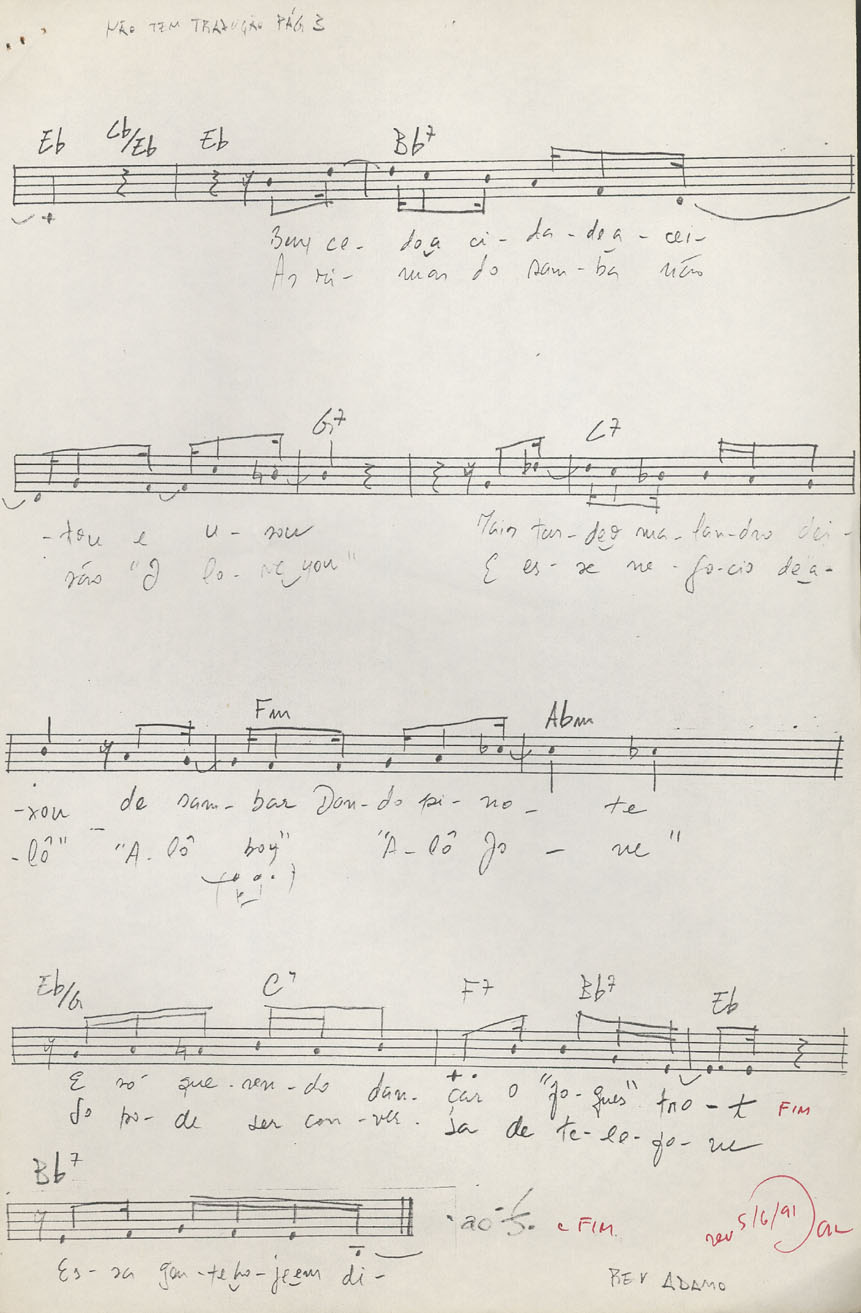 NÃO TEM TRADUÇÃO PÁG 3
Eb Cb/Eb Eb Bb7
Bem ce- do a ci- da- de a- cei-
As ri- mas do sam- ba não
G7 C7
-tou e u- sou Mais tar- de o ma- lan- dro dei-
são "I lo- ve you" E es- se ne- gó- cio de a-
Fm Abm
-xou de sam- bar Dan- do pi- no- te
-lô" "A- lô boy" "A- lô Jo - ne"
Eb/G C7 F7 Bb7 Eb
E só que- ren- do dan- çar o "fo- gues" tro- t FIM
Só po- de ser con- ver- sa de te- le- fo- ne
Bb7
Es- sa gen- te ho- je em di- ao 𝄋 e FIM.
rev 5/6/91
REV ADAMO